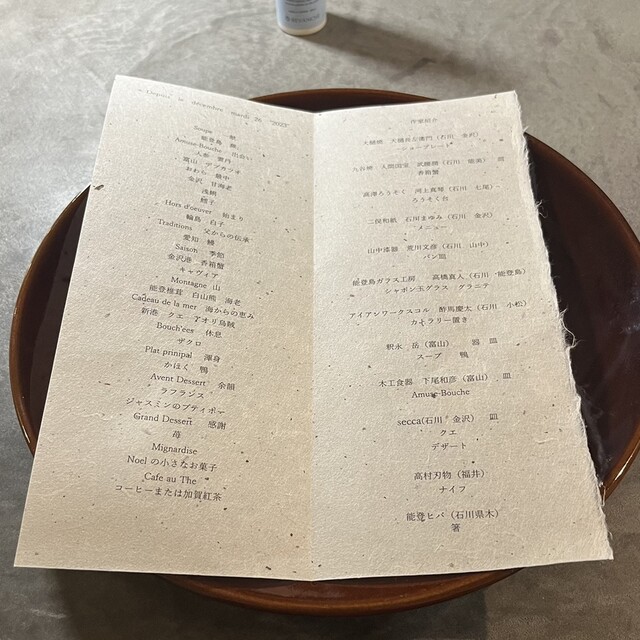 Depuis le décembre mardi 26 "2023"
Soupe 鴨
能登島
Amuse-Bouche 出会い
人参 雲丹
富山 アブカツオ
おわら 最中
金沢 甘海老
浅柄
鰆子
Hors d'oeuver 始まり
輪島 白子
Traditions 父からの伝承
愛知 鰻
Saison 季節
金沢港 香箱蟹
キャヴィア
Montagne 山
能登椎茸 白山熊 海老
Cadeau de la mer 海からの恵み
新港 クエ アオリ烏賊
Bouch'ees 休息
ザクロ
Plat prinipal 渾身
かほく 鴨
Avent Dessert 余韻
ラフランス
ジャスミンのプティポー
Grand Dessert 感謝
苺
Mignardise
Noel の小さなお菓子
Cafe au The
コーヒーまたは加賀紅茶
作家紹介
大樋焼 大樋長左衛門（石川 金沢）
ショープレート
九谷焼 武腰潤（石川 能美） 皿
香箱蟹
高澤ろうそく 河上真琴（石川 七尾）
ろうそく台
二俣和紙 石川まゆみ（石川 金沢）
メニュー
山中塗器 荒川文彦（石川 山中）
パン皿
能登島ガラス工房 高橋真人（石川 能登島）
シャボン玉グラス グラニテ
アイアンワークスコル 酢馬慶太（石川 小松）
カトラリー置き
釈永 岳（富山） 器 皿
スープ 鴨
木工食器 下尾和彦（富山） 皿
Amuse-Bouche
secca(石川 金沢） 皿
クエ
デザート
高村刃物（福井）
ナイフ
能登ヒバ（石川県木）
箸